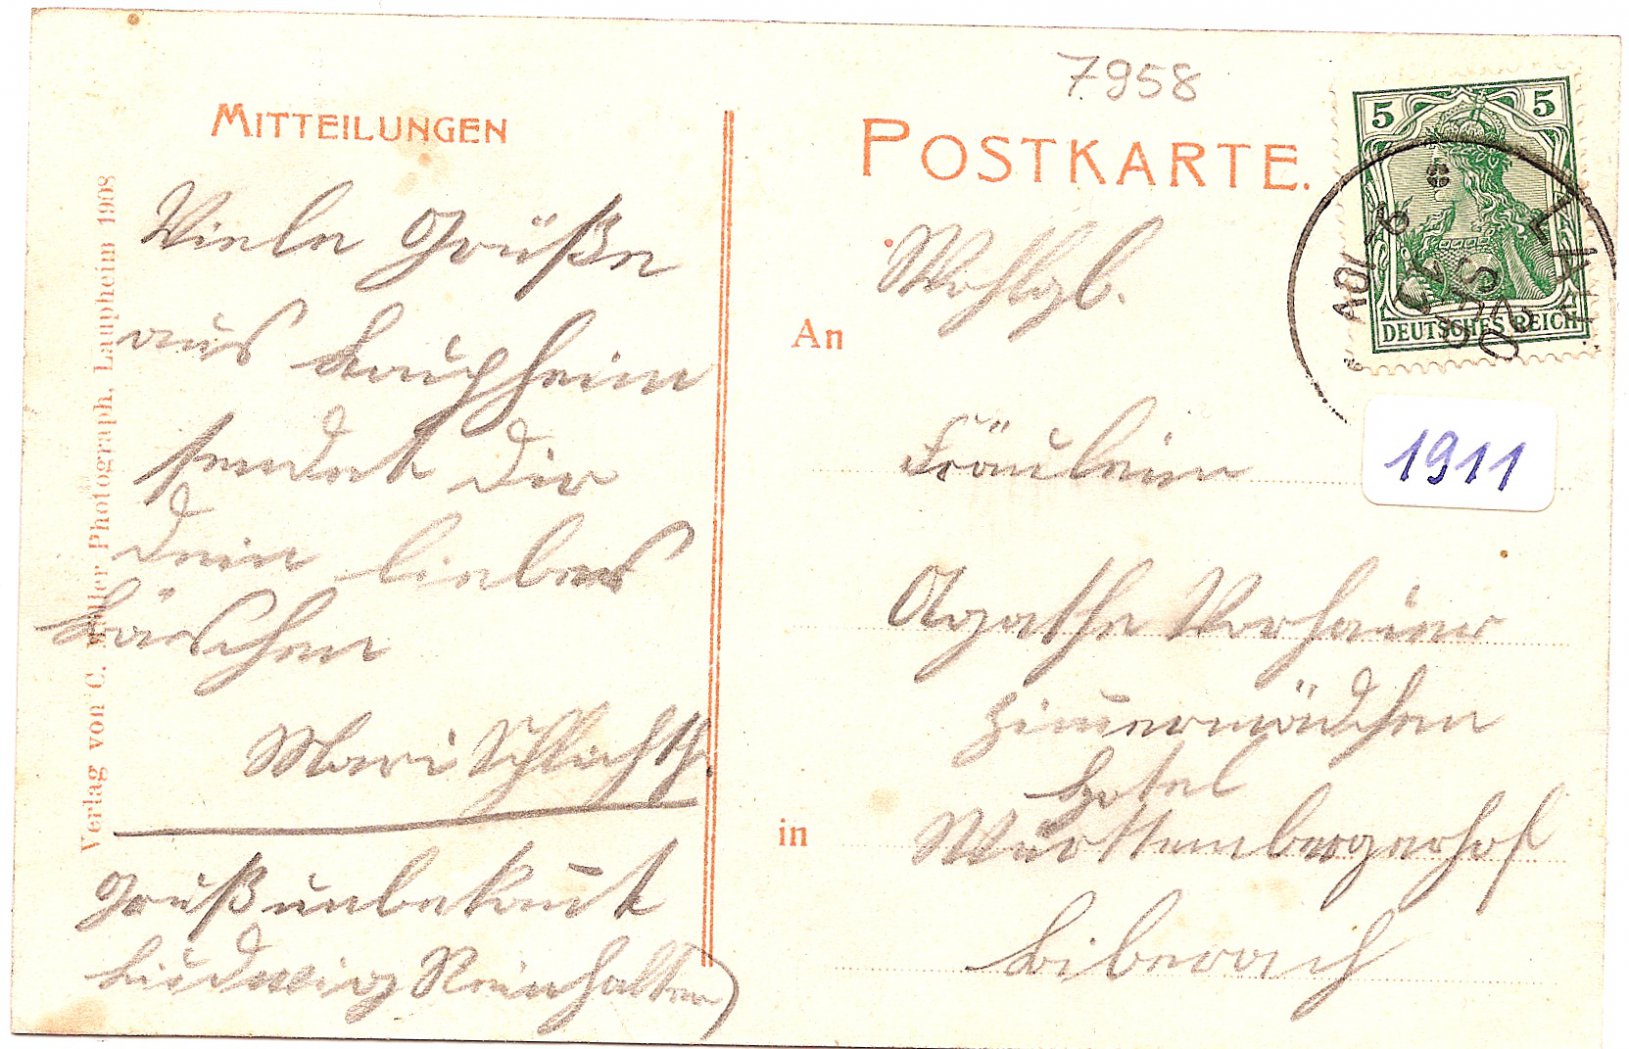 7958
MITTEILUNGEN
POSTKARTE.
5 5
DEUTSCHES REICH
1911
Verlag von C. Müller Photograph, Laupheim 1908
Viele Grüße
aus Laupheim
sendet Dir
Dein liebes
Bäschen
Mari
Gruß unbekannt
Ludwig
An
in
Wohlgb.
Fräulein
Agathe
Zimmermädchen
Hotel
Württembergerhof
Biberach